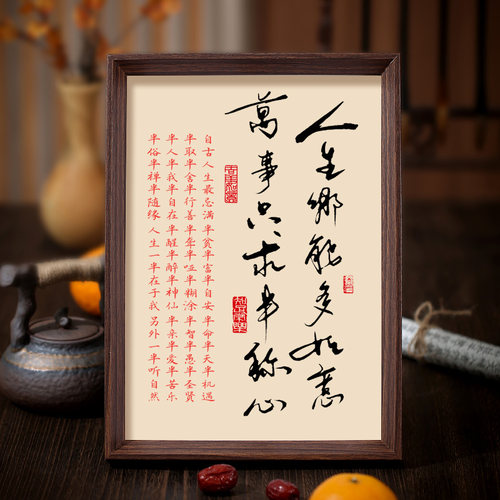 人生哪能多如意
萬事只求半称心
自古人生最忌满 半贫半富半自安 半命半天半机遇
半取半舍半行善 半聋半哑半糊涂 半智半愚半圣贤
半人半我半自在 半醒半醉半神仙 半亲半爱半苦乐
半俗半禅半随缘 人生一半在于我 另外一半听自然